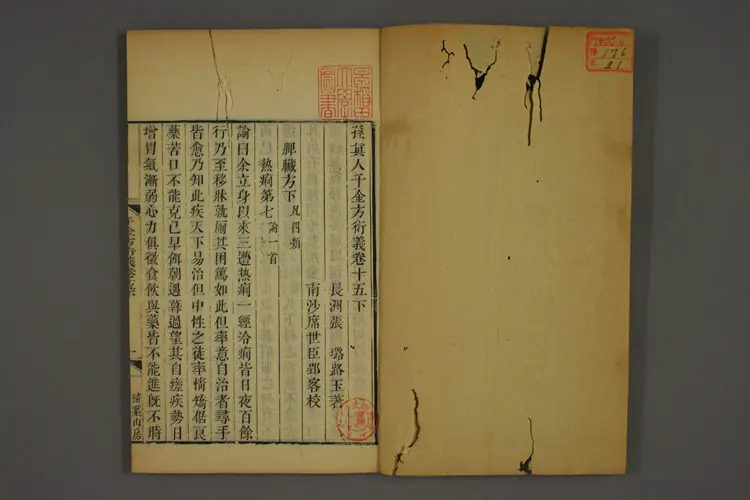 176
21
孫眞人千金方衍義卷十五下
長洲張 璐路玉著
南沙席世臣郢客校
脾臟方下 凡四類
熱痢第七 論一首
論曰余立身以來三遭熱痢一經冷痢皆日夜百餘
行乃至移牀就厠其困篤如此但率意自治者尋手
皆愈乃知此疾天下易治但中性之徒率情矯倨良
藥苦口不能克己早餌朝遇暮過望其自瘥疾勢日
增胃氣漸弱心力俱微食飲與藥皆不能進旣不時
千金方衍義卷十五下
一
掃葉山房